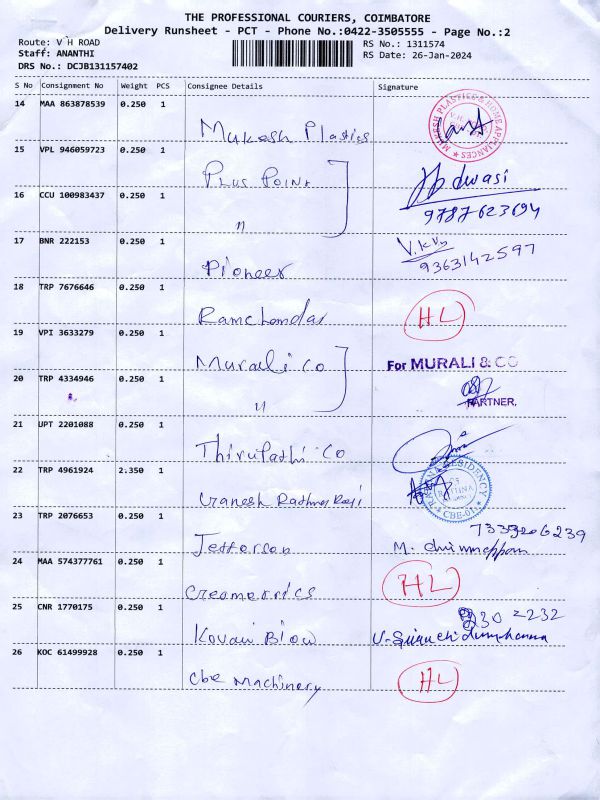 THE PROFESSIONAL COURIERS, COIMBATORE
Delivery Runsheet - PCT - Phone No.:0422-3505555 - Page No.:2
Route: V H ROAD
RS No.: 1311574
Staff: ANANTHI
RS Date: 26-Jan-2024
DRS No.: DCJB131157402
S No Consignment No Weight PCS Consignee Details Signature
14 MAA 863878539 0.250 1
Mukesh Plastics
MUKESH PLASTICS & HOME APPLIANCES
15 VPL 946059723 0.250 1
Plus Point
16 CCU 100983437 0.250 1
"
9787623694
17 BNR 222153 0.250 1
Pioneer
9363142597
18 TRP 7676646 0.250 1
Ramchandar
HL
19 VPI 3633279 0.250 1
Murali Co
For MURALI & CO
20 TRP 4334946 0.250 1
"
PARTNER.
21 UPT 2201088 0.250 1
Thirupathi Co
22 TRP 4961924 2.350 1
Ganesh
RESIDENCY
CBE-01
23 TRP 2076653 0.250 1
Jefferson
M.
24 MAA 574377761 0.250 1
HL
25 CNR 1770175 0.250 1
Kovai
26 KOC 61499928 0.250 1
Cbe Machinery
HL